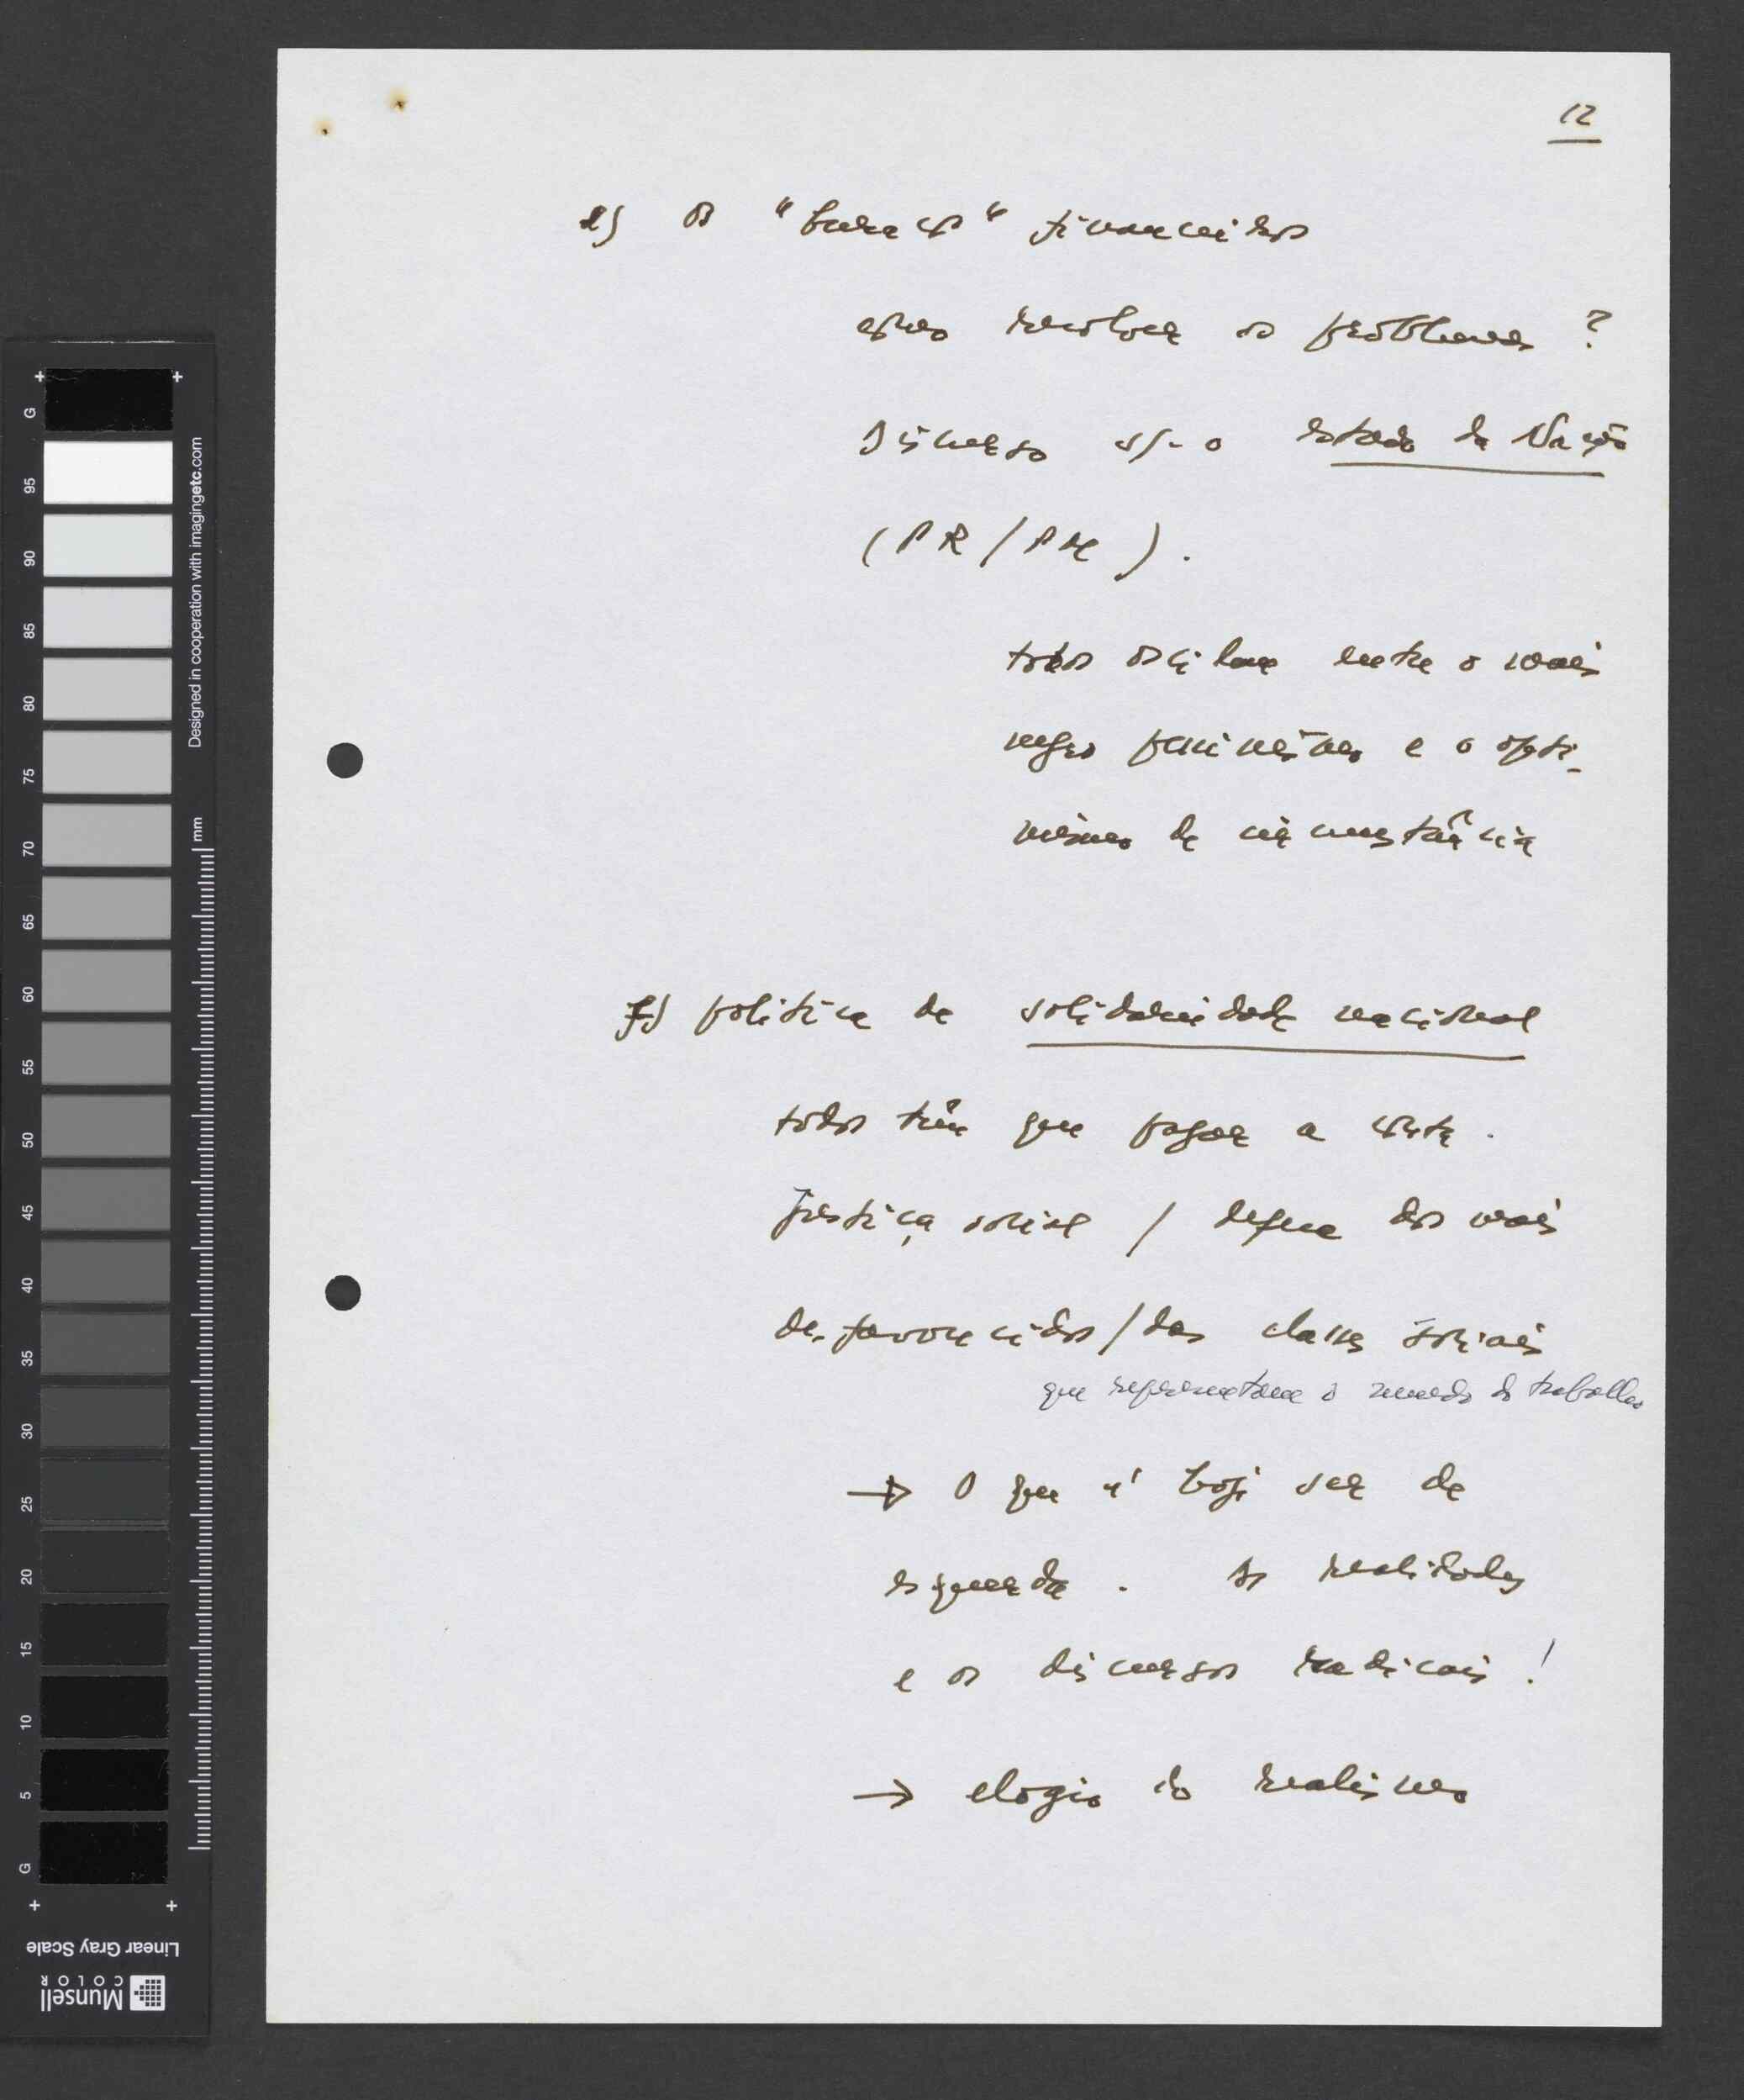 12
e) os "buracos" financeiros
como resolver os problemas?
Discurso s/- o estado da Nação
(PR/PM).
todos oscilam entre o mais
negro pessimismo e o opti-
mismo de circunstância
f) politica de solidariedade nacional
todos têm que pagar a crise.
justiça social / defesa dos mais
desfavorecidos/das classes sociais
que representam o mundo do trabalho
→ O que é hoje ser de
esquerda. As realidades
e os discursos radicais!
→ elogio do realismo
G
95
90
85
80
75
70
65
60
55
50
45
40
35
30
25
20
15
10
5
G
Designed in cooperation with imagingetc.com
mm
Linear Gray Scale
Munsell
COLOR